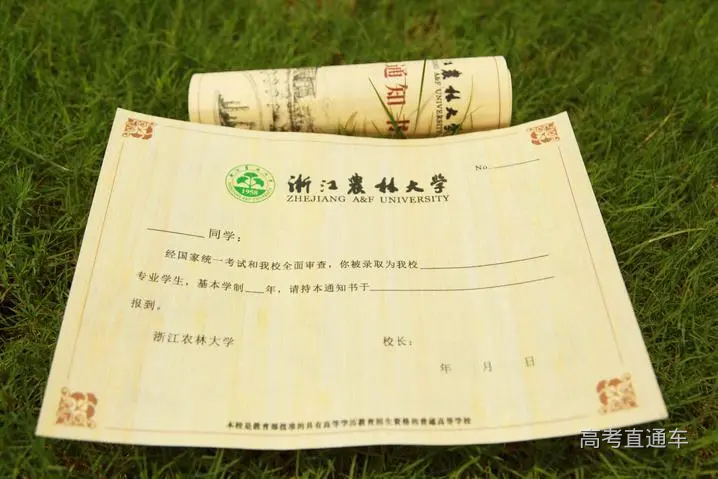 通知书
浙江農林大学
A&F UNIVERSITY
No.
1958
浙江農林大学
ZHEJIANG A&F UNIVERSITY
同学：
经国家统一考试和我校全面审查，你被录取为我校
专业学生，基本学制___年，请持本通知书于
报到。
浙江农林大学 校长：
年 月 日
本校是教育部批准的具有高等学历教育招生资格的普通高等学校
高考直通车